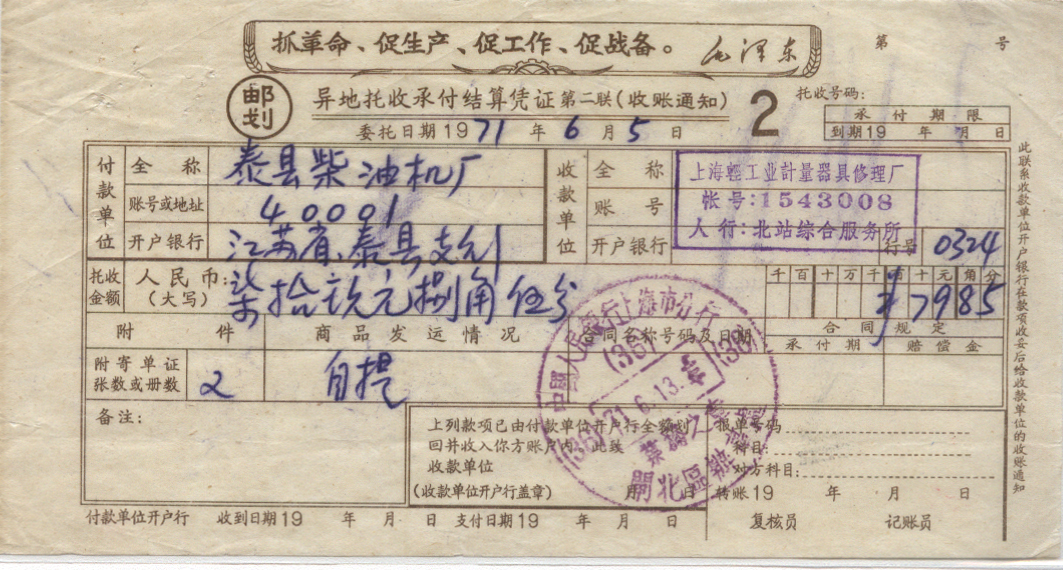 抓革命、促生产、促工作、促战备。
毛泽东
第 号
邮划
异地托收承付结算凭证 第二联(收账通知)
2
托收号码:
承付期限
到期19 年 月 日
委托日期1971年6月5日
付款单位
全称 泰县柴油机厂
账号或地址 40001
开户银行 江苏省泰县支行
收款单位
全称 上海轻工业計量器具修理厂
账号 帐号:1543008
开户银行 人行:北站综合服务所
行号 0324
托收金额
人民币:(大写) 柒拾玖元捌角伍分
千百十万千百十元角分
¥7985
附件
商品发运情况
合同名称号码及日期
合同规定
承付期 赔偿金
附寄单证张数或册数 2
自提
备注:
上列款项已由付款单位开户行全额划
回并收入你方账户内。此致
收款单位
(收款单位开户行盖章) 月 日
报单号码
科目:
对方科目:
转账19 年 月 日
付款单位开户行 收到日期19 年 月 日 支付日期19 年 月 日
复核员 记账员
此联系收款单位开户银行在款项收妥后给收款单位的收账通知
中國人民银行上海市分行
(36) (36)
71.6.13.
(36)
閘北區辦